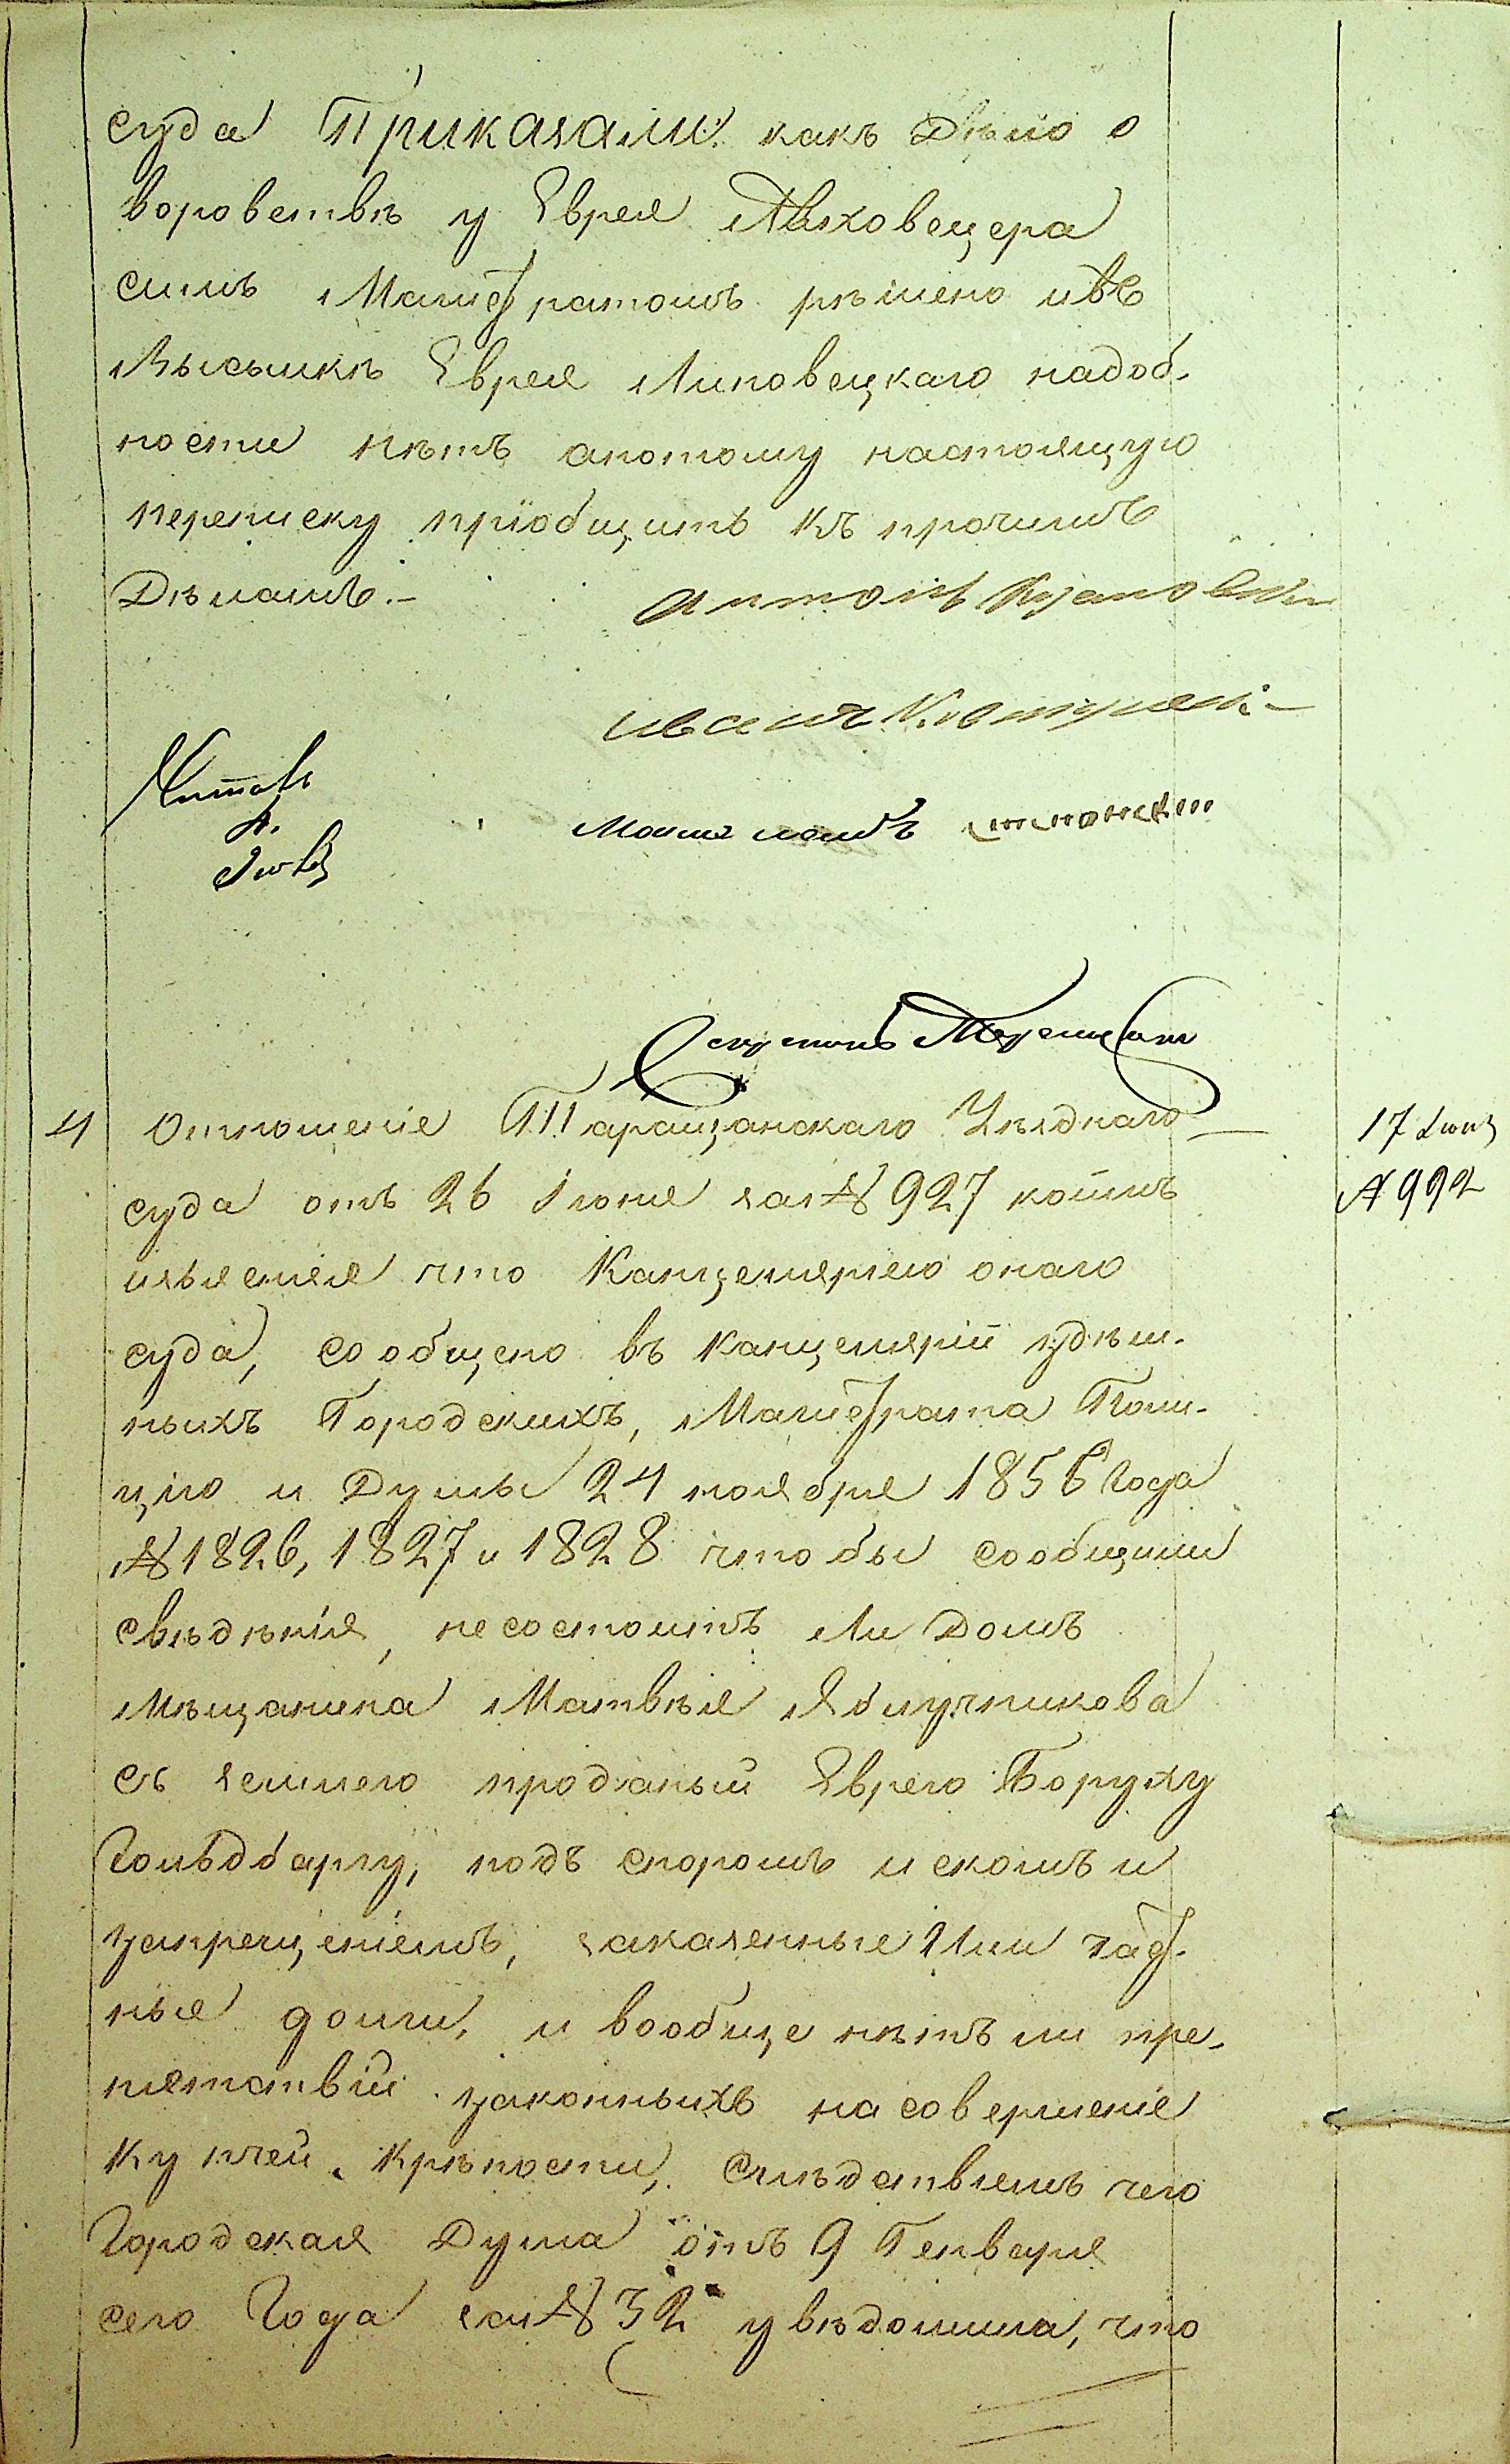 суда Приказали: какъ Дѣло о
воровствѣ у Еврея Ляховецера
симъ Магистратомъ рѣшено и въ
Высылкѣ Еврея Липовецкаго надоб-
ности нѣтъ апотому настоящую
переписку пріобщить къ прочимъ
Дѣламъ.-
Антонъ
Иванъ
Читалъ
4 Отношеніе Таращанскаго Уѣзднаго
17 Іюня
суда отъ 26 Іюня за № 927 коимъ
№ 992
изъясняя что Канцеляріею онаго
суда, сообщено въ канцеляріи здѣш-
ныхъ Городскихъ, Магистрата Поли-
цію и Думы 24 ноября 1856 Года
№ 1826, 1827 и 1828 чтобы сообщили
свѣдѣнія, несостоитъ Ли Домъ
мѣщанина Матвѣя Яблучникова
съ землею проданый Еврею Боруху
Гольдбаргу, подъ споромъ искомъ и
запрещеніемъ, заказенные Или част-
ные долги, и вообще нѣтъ ли пре-
пятствій законныхъ на совершеніе
купчей крѣпости, Слѣдствіемъ чего
Городская Дума отъ 9 Генваря
сего Года за № 32 увѣдомила, что